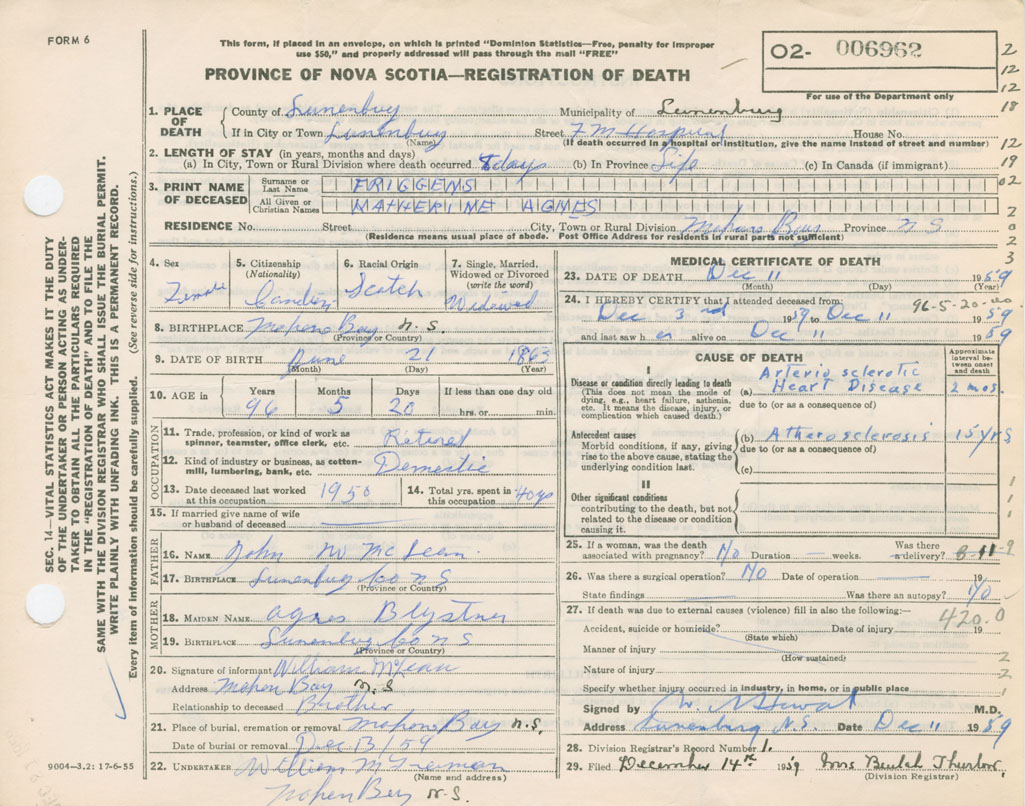 FORM 6
This form, if placed in an envelope, on which is printed "Dominion Statistics—Free, penalty for improper
use $50," and properly addressed will pass through the mail "FREE"
PROVINCE OF NOVA SCOTIA—REGISTRATION OF DEATH
O2- 006962
For use of the Department only
2
12
12
18
12
19
02
2
0
2
3
SEC. 14—VITAL STATISTICS ACT MAKES IT THE DUTY
OF THE UNDERTAKER OR PERSON ACTING AS UNDER-
TAKER TO OBTAIN ALL THE PARTICULARS REQUIRED
IN THE "REGISTRATION OF DEATH" AND TO FILE THE
SAME WITH THE DIVISION REGISTRAR WHO SHALL ISSUE THE BURIAL PERMIT.
WRITE PLAINLY WITH UNFADING INK. THIS IS A PERMANENT RECORD.
Every item of information should be carefully supplied. (See reverse side for instructions.)
1. PLACE OF DEATH
County of Lunenburg Municipality of Lunenburg
If in City or Town Lunenburg Street F M Hospital House No.
(Name) (If death occurred in a hospital or institution, give the name instead of street and number)
2. LENGTH OF STAY (in years, months and days)
(a) In City, Town or Rural Division where death occurred days (b) In Province Life (c) In Canada (if immigrant)
3. PRINT NAME OF DECEASED
Surname or Last Name FRIGGENS
All Given or Christian Names KATHERINE AGNES
RESIDENCE No. Street City, Town or Rural Division Mahone Bay Province N S
(Residence means usual place of abode. Post Office Address for residents in rural parts not sufficient)
4. Sex Female
5. Citizenship (Nationality)
6. Racial Origin Scotch
7. Single, Married, Widowed or Divorced (write the word) Widowed
8. BIRTHPLACE Mahone Bay N.S.
(Province or Country)
9. DATE OF BIRTH June 21 1863
(Month) (Day) (Year)
10. AGE in Years Months Days If less than one day
96 5 20 hrs. or min.
OCCUPATION
11. Trade, profession, or kind of work as
spinner, teamster, office clerk, etc. Retired
12. Kind of industry or business, as cotton-
mill, lumbering, bank, etc. Domestic
13. Date deceased last worked at this occupation 1950
14. Total yrs. spent in this occupation 40 yrs
15. If married give name of wife
or husband of deceased
FATHER
16. NAME John McLean
17. BIRTHPLACE Lunenburg Co N S
(Province or Country)
MOTHER
18. MAIDEN NAME Agnes
19. BIRTHPLACE Lunenburg Co N S
(Province or Country)
20. Signature of informant William McLean
Address Mahone Bay N.S
Relationship to deceased Brother
21. Place of burial, cremation or removal Mahone Bay N.S,
Date of burial or removal Dec 13/59
22. UNDERTAKER William
(Name and address)
Mahone Bay N.S.
9004—3.2: 17-6-55
MEDICAL CERTIFICATE OF DEATH
23. DATE OF DEATH Dec 11 1959
(Month) (Day)
24. I HEREBY CERTIFY that I attended deceased from: 96-5-20
Dec 3rd 1959 to Dec 11 1959
and last saw her alive on Dec 11 1959
CAUSE OF DEATH
Approximate interval between onset and death
I
Disease or condition directly leading to death
(This does not mean the mode of
dying, e.g., heart failure, asthenia,
etc. It means the disease, injury, or
complication which caused death.)
(a) Arterio sclerotic
Heart Disease 2 mos.
due to (or as a consequence of)
Antecedent causes
Morbid conditions, if any, giving
rise to the above cause, stating the
underlying condition last.
(b) Atherosclerosis 15 yrs
due to (or as a consequence of)
(c)
II
Other significant conditions
contributing to the death, but not
related to the disease or condition
causing it.
1
1
1
25. If a woman, was the death
associated with pregnancy? No Duration weeks. Was there a delivery?
26. Was there a surgical operation? No Date of operation 19
State findings Was there an autopsy? No
27. If death was due to external causes (violence) fill in also the following:— 420.0
Accident, suicide or homicide? Date of injury 19
(State which)
Manner of injury
(How sustained)
Nature of injury
Specify whether injury occurred in industry, in home, or in public place
2
2
1
Signed by M.D.
Address Lunenburg N.S. Date Dec 11 1959
28. Division Registrar's Record Number 1.
29. Filed December 14th 1959 Mrs Beulah Thurlow
(Division Registrar)